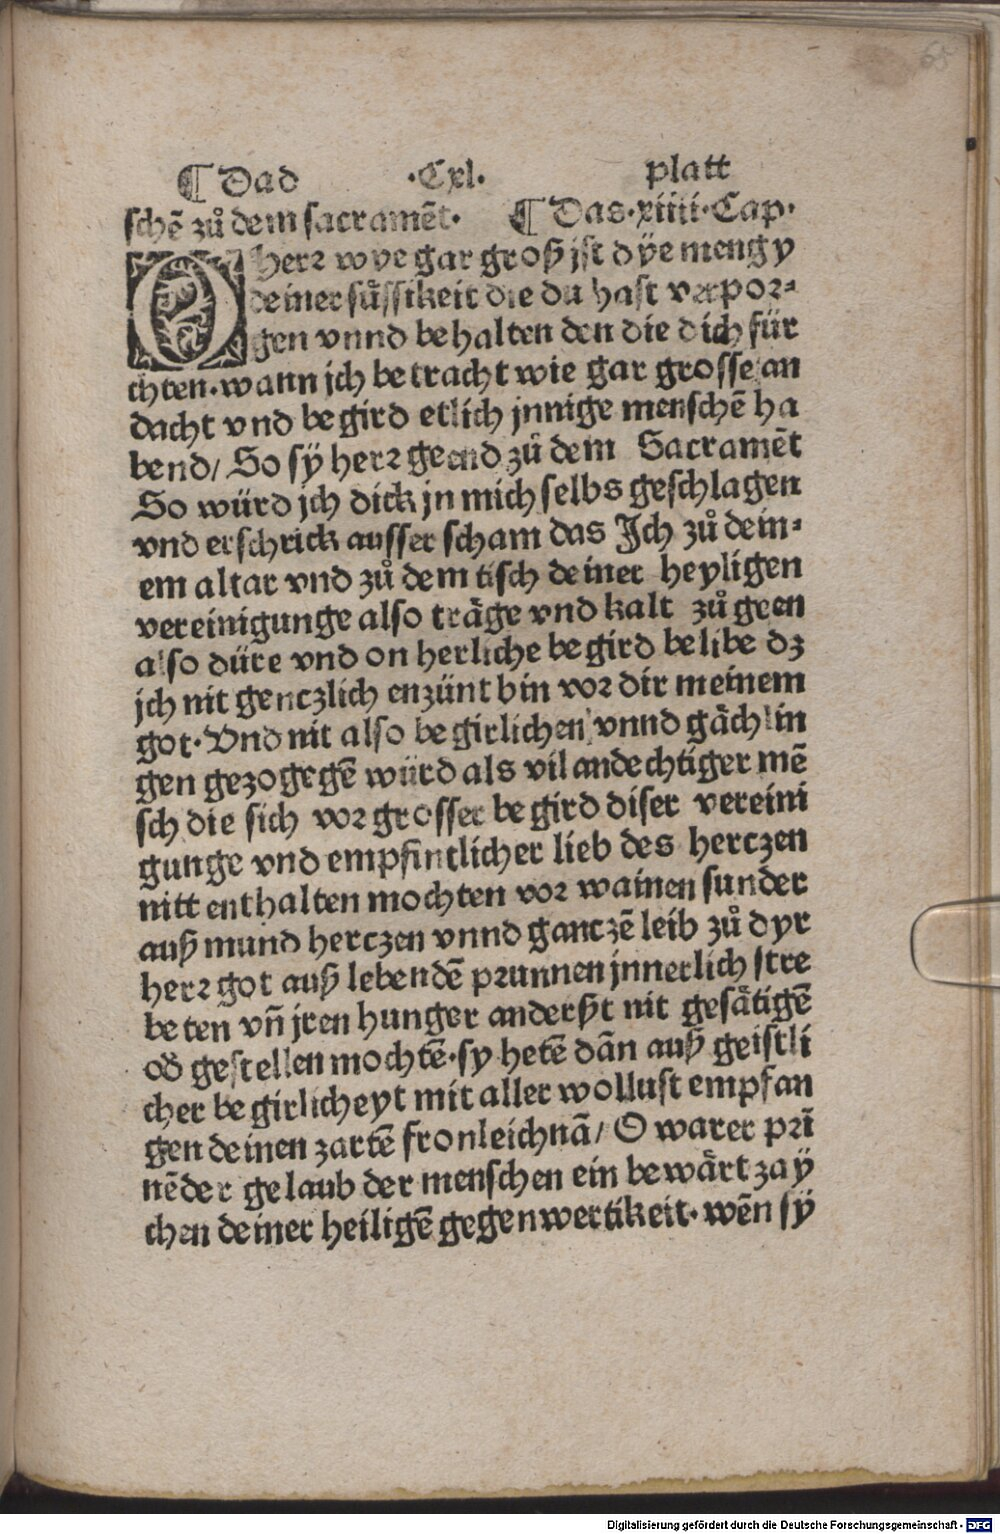 65
¶ Dad .Cxl. platt
schē zů dem sacramēt. ¶ Das.xiiii.Cap.
O herꝛ wye gar groß jst dÿe meng y
deiner sůssikeit die du hast verpoꝛ⸗
gen vnnd behalten den die dich für
chten.wann jch betracht wie gar grosse an
dacht vnd begird etlich jnnige menschē ha
bend/ So sÿ herꝛ geend zů dem Sacramēt
So würd jch dick jn mich selbs geschlagen
vnd erschrick ausser scham das Jch zů dein⸗
em altar vnd zů dem tisch deiner heyligen
vereinigunge also träge vnd kalt zů geen
also düre vnd on herliche begird belibe dz
jch nit genczlich enzünt bin voꝛ dir meinem
got. Vnd nit also begirlichen vnnd gächlin
gen gezogegē würd als vil andechtiger mē
sch die sich voꝛ grosser begird diser vereini
gunge vnd empfintlicher lieb des herczen
nitt enthalten mochten voꝛ wainen sunder
auß mund herczen vnnd ganczē leib zů dyr
herꝛ got auß lebendē pꝛunnen jnnerlich stre
beten vñ jren hunger anderßt nit gesätigē
od̄ gestellen mochtē.sy hetē dān auß geistli
cher begirlicheyt mit aller wollust empfan
gen deinen zartē fronleichnā/ O warer pꝛī
nēder gelaub der menschen ein bewärt zaÿ
chen deiner heiligē gegenwertikeit. wēn sÿ
Digitalisierung gefördert durch die Deutsche Forschungsgemeinschaft - DFG